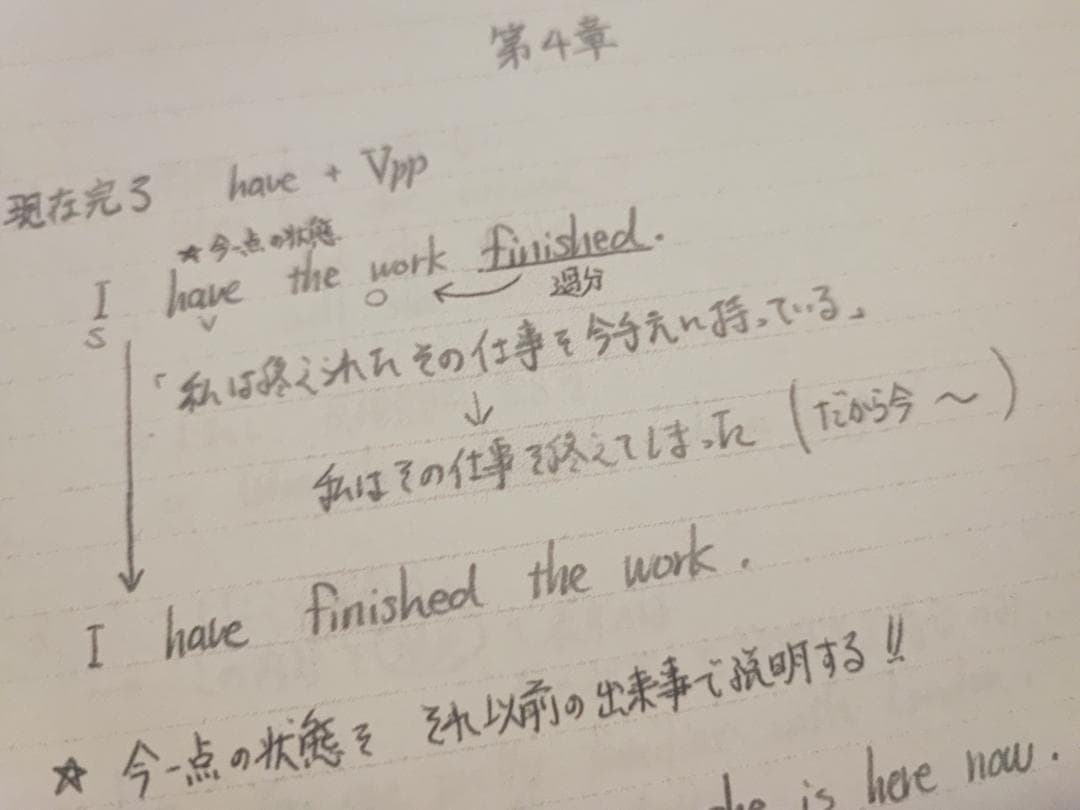 第4章
現在完了 have + Vpp
★今一点の状態
I have the work finished.
S V O 過分
「私は終えられたその仕事を今手元に持っている」
↓
私はその仕事を終えてしまった (だから今〜)
I have finished the work.
☆ 今一点の状態を それ以前の出来事で説明する!!
he is here now.